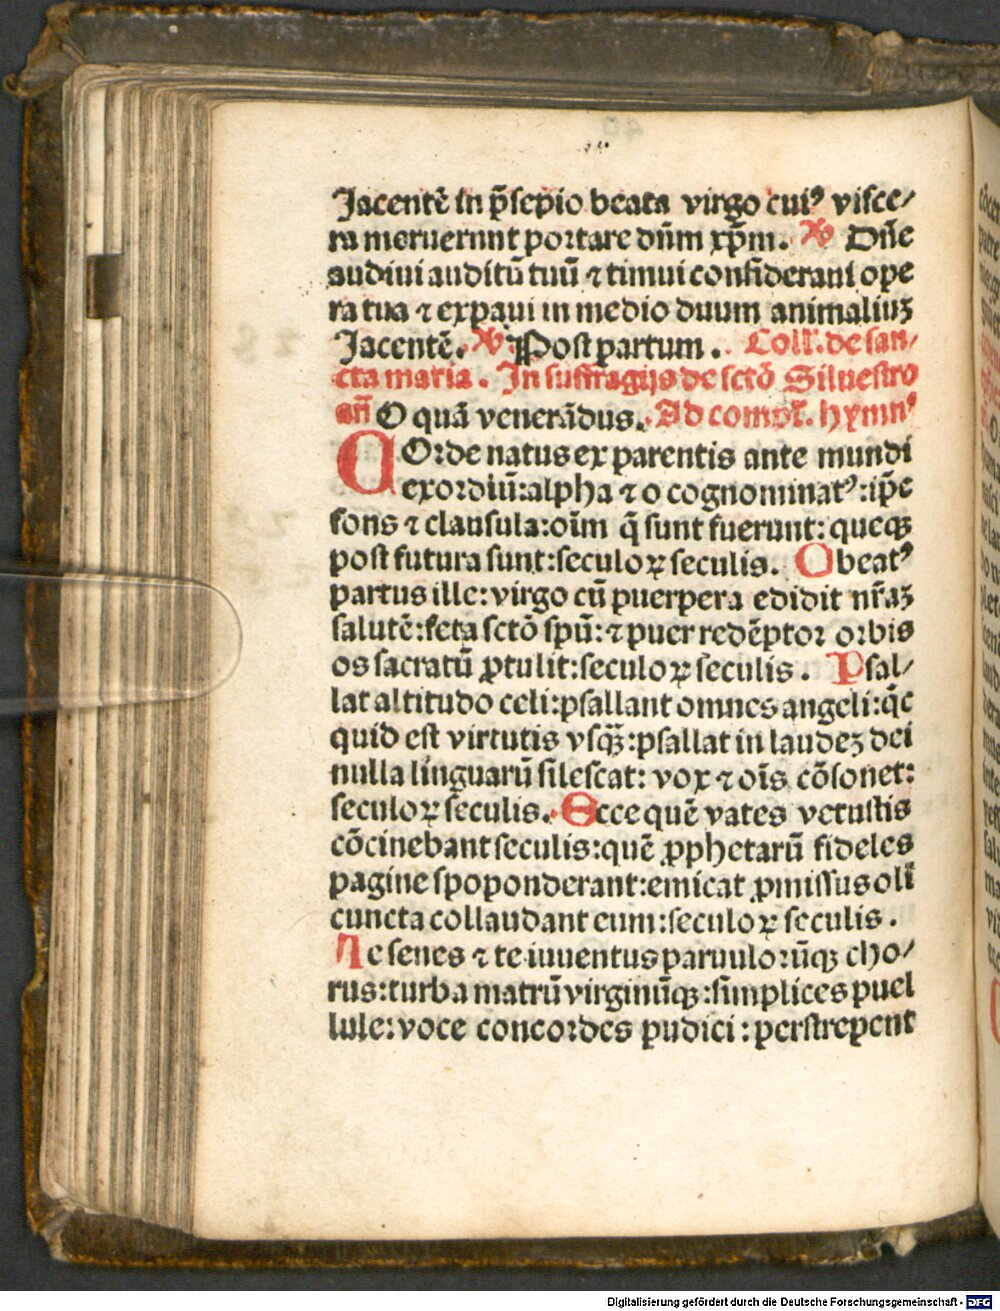 Jacentē in p̄sepio beata virgo cuiꝰ visce⸗
ra meruerunt portare dn̄m xp̄m. ℣ Dn̄e
audiui auditū tuū ⁊ timui consideraui ope
ra tua ⁊ expaui in medio duum animaliuꝫ
Jacentē. ℣ Post partum. Coll'. de san⸗
cta maria. In suffragijs de sctō Siluestro
an̄ O quā venerādus. Ad compl'. hymnꝰ
COrde natus ex parentis ante mundi
exordiū:alpha ⁊ o cognominatꝰ:ip̄e
fons ⁊ clausula:oīm q̄ sunt fuerunt:queqꝫ
post futura sunt:seculoꝝ seculis. O beatꝰ
partus ille:virgo cū puerpera edidit nr̄aꝫ
salutē:feta sctō spū:⁊ puer redēptor orbis
os sacratū ꝓtulit:seculoꝝ seculis. Psal⸗
lat altitudo celi:psallant omnes angeli:q̄c
quid est virtutis vsqꝫ:psallat in laudeꝫ dei
nulla linguarū silescat: vox ⁊ oīs cōsonet:
seculoꝝ seculis. Ecce quē vates vetustis
cōcinebant seculis:quē ꝓphetarū fideles
pagine spoponderant:emicat ꝓmissus olī
cuncta collaudant eum:seculoꝝ seculis.
Te senes ⁊ te iuuentus paruulorūqꝫ cho⸗
rus:turba matrū virginūqꝫ:simplices puel
lule:voce concordes pudici:perstrepent
Digitalisierung gefördert durch die Deutsche Forschungsgemeinschaft - DFG